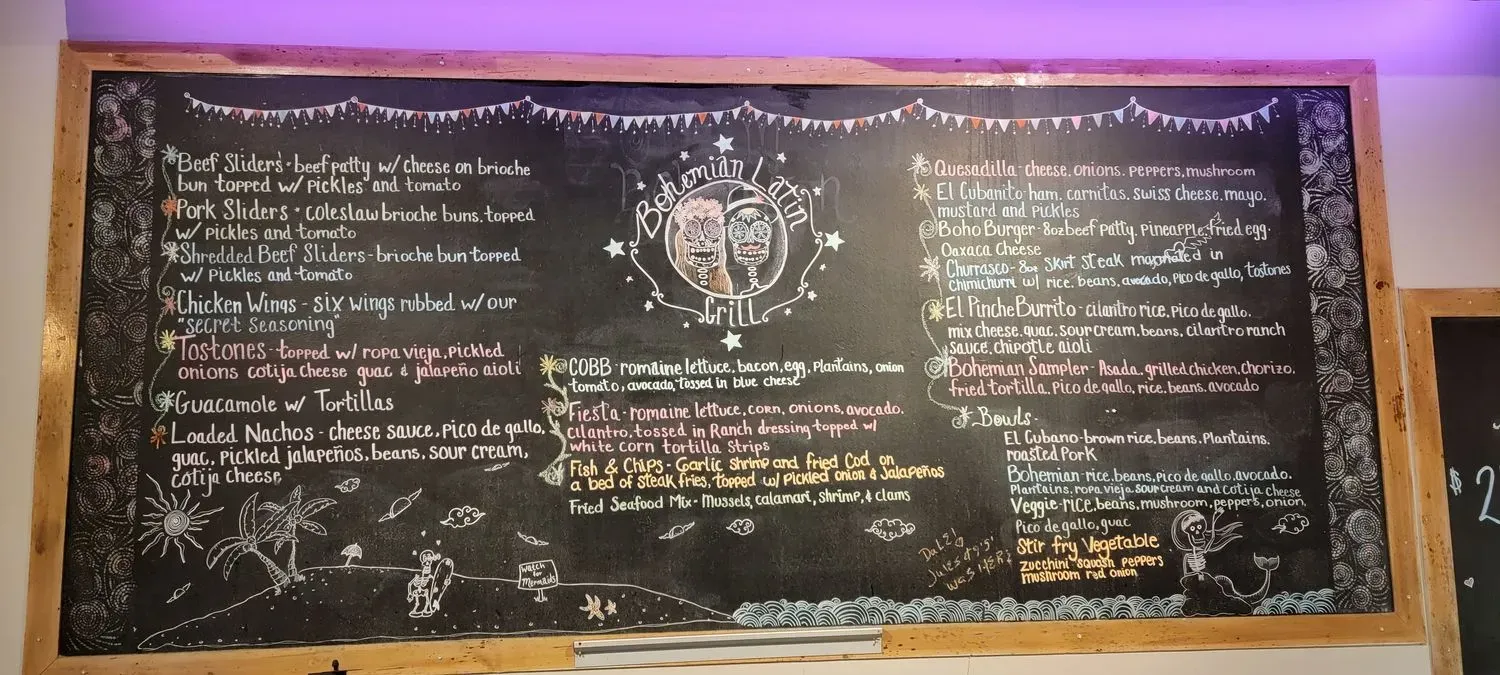 Beef Sliders - beef patty w/ cheese on brioche
bun topped w/ pickles and tomato
Pork Sliders - coleslaw brioche buns. topped
w/ pickles and tomato
Shredded Beef Sliders - brioche bun topped
w/ Pickles and tomato
Chicken Wings - six wings rubbed w/ our
"secret seasoning"
Tostones - topped w/ ropa vieja, pickled
onions cotija cheese guac & jalapeño aioli
Guacamole w/ Tortillas
Loaded Nachos - cheese sauce, pico de gallo,
guac, pickled jalapeños, beans, sour cream,
cotija cheese
Watch
for
Mermaids
Bohemian Latin
Grill
COBB - romaine lettuce, bacon, egg, Plantains, onion
tomato, avocado, tossed in blue cheese
Fiesta - romaine lettuce, corn, onions, avocado.
cilantro, tossed in Ranch dressing topped w/
white corn tortilla strips
Fish & Chips - Garlic shrimp and fried Cod on
a bed of steak fries, topped w/ Pickled onion & Jalapeños
Fried Seafood Mix - Mussels, calamari, shrimp, & clams
Quesadilla - cheese, onions. peppers, mushroom
El Cubanito - ham, carnitas. swiss cheese. mayo.
mustard and pickles
Boho Burger - 8oz beef patty, pineapple, fried egg.
Oaxaca Cheese
Churrasco - 8oz skirt steak marinated in
chimichurri w/ rice, beans, avocado, pico de gallo, tostones
El Pinche Burrito - cilantro rice, pico de gallo.
mix cheese, guac, sour cream, beans, cilantro ranch
sauce, chipotle aioli
Bohemian Sampler - Asada, grilled chicken, chorizo,
fried tortilla, Pico de gallo, rice, beans, avocado
Bowls -
El Cubano - brown rice, beans, Plantains.
roasted Pork
Bohemian - rice, beans, pico de gallo, avocado.
Plantains, ropa vieja sour cream and cotija cheese
Veggie - rice, beans, mushroom, peppers, onion,
Pico de gallo, guac
Stir fry Vegetable
zucchini squash peppers
mushroom red onion
$ 2